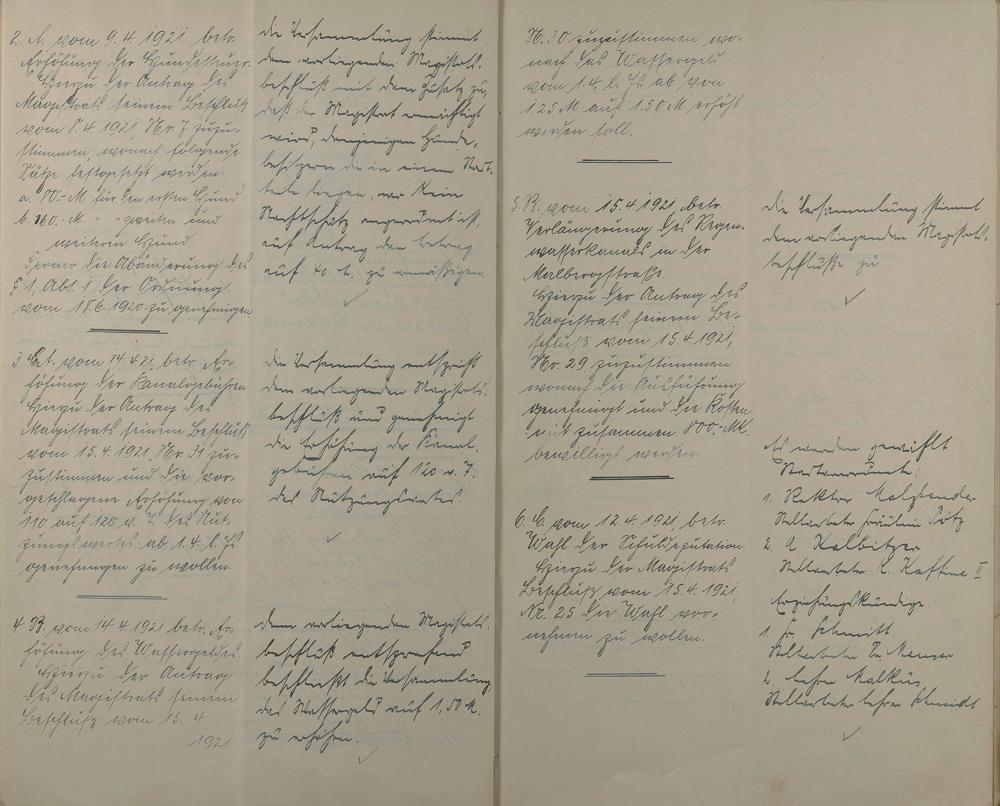 2. A. vom 9.4.1921 betr.
Erhöhung der Hundesteuer
Hierzu der Antrag des
Magistrats seinem Beschluß
vom 8.4.1921 Nr. 7 zuzu-
stimmen, wonach folgende
Sätze festgesetzt werden:
a. 80.-M für den ersten Hund
b. 160.-M. " " zweiten und
weiteren Hund
ferner die Abänderung des
§ 1, Abs. 1 der Ordnung
vom 18.6.1920 zu genehmigen.
die Versammlung stimmt
dem vorliegenden Magistrats-
beschluß mit dem Zusatz zu,
daß der Magistrat ermächtigt
wird, denjenigen Hunde-
besitzern die in einem Stadt-
teile liegen, wo kein
Nachtschutz angeordnet ist,
auf Antrag den Betrag
auf 40 M. zu ermäßigen.
3. vom 14.4.21, betr. Er-
höhung der Kanalgebühren
Hierzu der Antrag des
Magistrats seinem Beschluß
vom 15.4.1921, Nr. 31 zu-
zustimmen und die vor-
geschlagene Erhöhung von
110 auf 120 v. T. des Nut-
zungswertes ab 1.4. l. Js
genehmigen zu wollen.
Die Versammlung entspricht
dem vorliegenden Magistrats-
beschluß und genehmigt
die Erhöhung der Kanal-
gebühren auf 120 v. T.
des Nutzungswertes.
4 B. vom 14.4.1921 betr. Er-
höhung des Wassergeldes.
Hierzu der Antrag
des Magistrats seinem
Beschluß vom 15. 4
1921
Dem vorliegenden Magistrats-
beschluß entsprechend
beschließt die Versammlung
das Wassergeld auf 1,50 M.
zu erhöhen.
N. 30 zuzustimmen wo-
nach das Wassergeld
vom 1.4. l. Js ab von
1.25 M auf 1.50 M erhöht
werden soll.
5. B. vom 15.4.1921, betr.
Verlängerung des Regen-
wasserkanals in der
Malbergstraße.
Hierzu der Antrag des
Magistrats seinem Be-
schluß vom 15.4.1921,
Nr. 29 zuzustimmen
wonach die Ausführung
genehmigt und die Kosten
mit zusammen 800.-Mk.
bewilligt werden.
die Versammlung stimmt
dem vorliegenden Magistrats-
beschluße zu
6. C. vom 12.4.1921 betr.
Wahl der Schuldeputation
Hierzu der Magistrats
Beschluß vom 15.4.1921,
Nr. 25 die Wahl vor-
nehmen zu wollen.
Es wurden gewählt
Stadtverordnete:
1. Rektor Malzbender
Stellvertreter Fräulein
2. A Kalbitzer
Stellvertreter L. Kaffine II
Erziehungskundige.
1. Fr. Schmitt
Stellvertreter Menzer
2. Lehrer Malkus
Stellvertreter Lehrer Schmidt